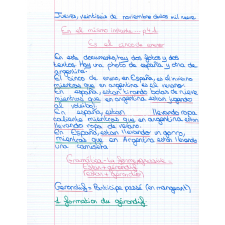 Jueves, veintiseis de noviembre de dos mil nueve
En el mismo
En el
En este documento, hay dos fotos y dos
textos. Hay una photo de españa y otra de
argentina.
El cinco de enero, en España, es el invierno
mientras que en argentina es el verano.
En españa, estan tirando bolas de nieve
mientras que en argentina estan jugando
al voleibol.
En españa, estan llevando ropa
caliente mientras que en argentina estan
llevando ropa de verano.
En España, estan llevando un gorro,
mientras que en Argentina estan llevando
una camiseta
Gramática:
Estar + gerundio
Gerundif = Participe passé (en mangeant)
1 formation du gérondif